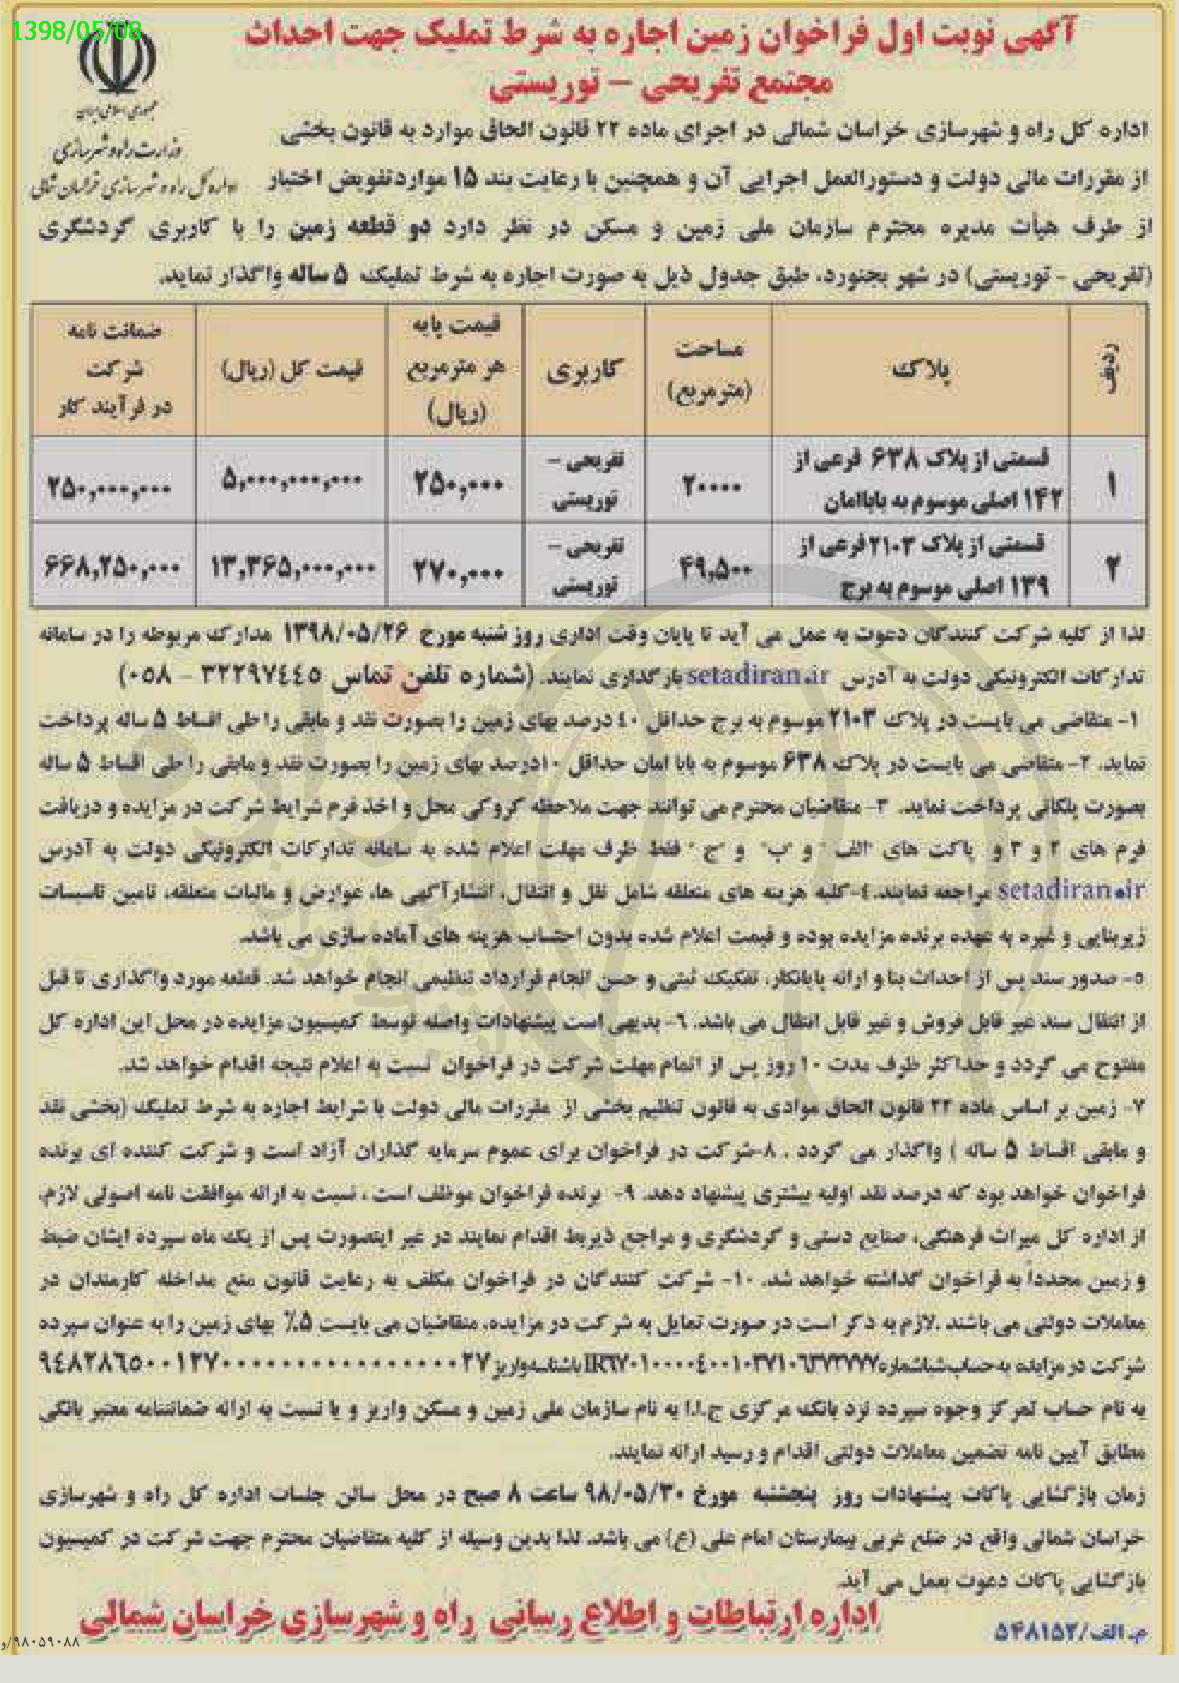 1398/05/08
آگهی نوبت اول فراخوان زمین اجاره به شرط تملیک جهت احداث
مجتمع تفریحی – توریستی
جمهوری اسلامی ایران
وزارت راه و شهرسازی
اداره کل راه و شهرسازی خراسان شمالی
اداره کل راه و شهرسازی خراسان شمالی در اجرای ماده ۲۲ قانون الحاق موارد به قانون بخشی
از مقررات مالی دولت و دستورالعمل اجرایی آن و همچنین با رعایت بند ۱۵ مواردتفویض اختیار
از طرف هیأت مدیره محترم سازمان ملی زمین و مسکن در نظر دارد دو قطعه زمین را با کاربری گردشگری
(تفریحی - توریستی) در شهر بجنورد، طبق جدول ذیل به صورت اجاره به شرط تملیک ۵ ساله واگذار نماید.
ردیف | پلاک | مساحت (مترمربع) | کاربری | قیمت پایه هر مترمربع (ریال) | قیمت کل (ریال) | ضمانت نامه شرکت در فرآیند کار
۱ | قسمتی از پلاک ۶۳۸ فرعی از ۱۴۲ اصلی موسوم به باباامان | ۲۰۰۰۰ | تفریحی – توریستی | ۲۵۰,۰۰۰ | ۵,۰۰۰,۰۰۰,۰۰۰ | ۲۵۰,۰۰۰,۰۰۰
۲ | قسمتی از پلاک ۲۱۰۳ فرعی از ۱۳۹ اصلی موسوم به برج | ۴۹,۵۰۰ | تفریحی – توریستی | ۲۷۰,۰۰۰ | ۱۳,۳۶۵,۰۰۰,۰۰۰ | ۶۶۸,۲۵۰,۰۰۰
لذا از کلیه شرکت کنندگان دعوت به عمل می آید تا پایان وقت اداری روز شنبه مورخ ۱۳۹۸/۰۵/۲۶ مدارک مربوطه را در سامانه
تدارکات الکترونیکی دولت به آدرس setadiran.ir بارگذاری نمایند. (شماره تلفن تماس ۳۲۲۹۷٤٤۵ – ۰۵۸)
۱- متقاضی می بایست در پلاک ۲۱۰۳ موسوم به برج حداقل ٤۰ درصد بهای زمین را بصورت نقد و مابقی را طی اقساط ۵ ساله پرداخت
نماید. ۲- متقاضی می بایست در پلاک ۶۳۸ موسوم به بابا امان حداقل ۱۰درصد بهای زمین را بصورت نقد و مابقی را طی اقساط ۵ ساله
بصورت پلکانی پرداخت نماید. ۳- متقاضیان محترم می توانند جهت ملاحظه کروکی محل و اخذ فرم شرایط شرکت در مزایده و دریافت
فرم های ۲ و ۳ و پاکت های "الف" و "ب" و "ج" فقط ظرف مهلت اعلام شده به سامانه تدارکات الکترونیکی دولت به آدرس
setadiran.ir مراجعه نمایند.٤-کلیه هزینه های متعلقه شامل نقل و انتقال، انتشارآگهی ها، عوارض و مالیات متعلقه، تامین تاسیسات
زیربنایی و غیره به عهده برنده مزایده بوده و قیمت اعلام شده بدون احتساب هزینه های آماده سازی می باشد.
۵- صدور سند پس از احداث بنا و ارائه پایانکار، تفکیک ثبتی و حسن انجام قرارداد تنظیمی انجام خواهد شد. قطعه مورد واگذاری تا قبل
از انتقال سند غیر قابل فروش و غیر قابل انتقال می باشد. ٦- بدیهی است پیشنهادات واصله توسط کمیسیون مزایده در محل این اداره کل
مفتوح می گردد و حداکثر ظرف مدت ۱۰ روز پس از اتمام مهلت شرکت در فراخوان نسبت به اعلام نتیجه اقدام خواهد شد.
۷- زمین بر اساس ماده ۲۲ قانون الحاق موادی به قانون تنظیم بخشی از مقررات مالی دولت با شرایط اجاره به شرط تملیک (بخشی نقد
و مابقی اقساط ۵ ساله ) واگذار می گردد . ۸-شرکت در فراخوان برای عموم سرمایه گذاران آزاد است و شرکت کننده ای برنده
فراخوان خواهد بود که درصد نقد اولیه بیشتری پیشنهاد دهد. ۹- برنده فراخوان موظف است ، نسبت به ارائه موافقت نامه اصولی لازم،
از اداره کل میراث فرهنگی، صنایع دستی و گردشگری و مراجع ذیربط اقدام نمایند در غیر اینصورت پس از یک ماه سپرده ایشان ضبط
و زمین مجدداً به فراخوان گذاشته خواهد شد. ۱۰- شرکت کنندگان در فراخوان مکلف به رعایت قانون منع مداخله کارمندان در
معاملات دولتی می باشند .لازم به ذکر است در صورت تمایل به شرکت در مزایده، متقاضیان می بایست ۵٪ بهای زمین را به عنوان سپرده
شرکت در مزایده به حساب شبا شماره
به نام حساب تمرکز وجوه سپرده نزد بانک مرکزی ج.ا.ا به نام سازمان ملی زمین و مسکن واریز و یا نسبت به ارائه ضمانتنامه معتبر بانکی
مطابق آیین نامه تضمین معاملات دولتی اقدام و رسید ارائه نمایند.
زمان بازگشایی پاکات پیشنهادات روز پنجشنبه مورخ ۹۸/۰۵/۳۰ ساعت ۸ صبح در محل سالن جلسات اداره کل راه و شهرسازی
خراسان شمالی واقع در ضلع غربی بیمارستان امام علی (ع) می باشد. لذا بدین وسیله از کلیه متقاضیان محترم جهت شرکت در کمیسیون
بازگشایی پاکات دعوت بعمل می آید.
اداره ارتباطات و اطلاع رسانی راه و شهرسازی خراسان شمالی
م-الف/۵۴۸۱۵۲
۹۸۰۵۹۰۸۸/و